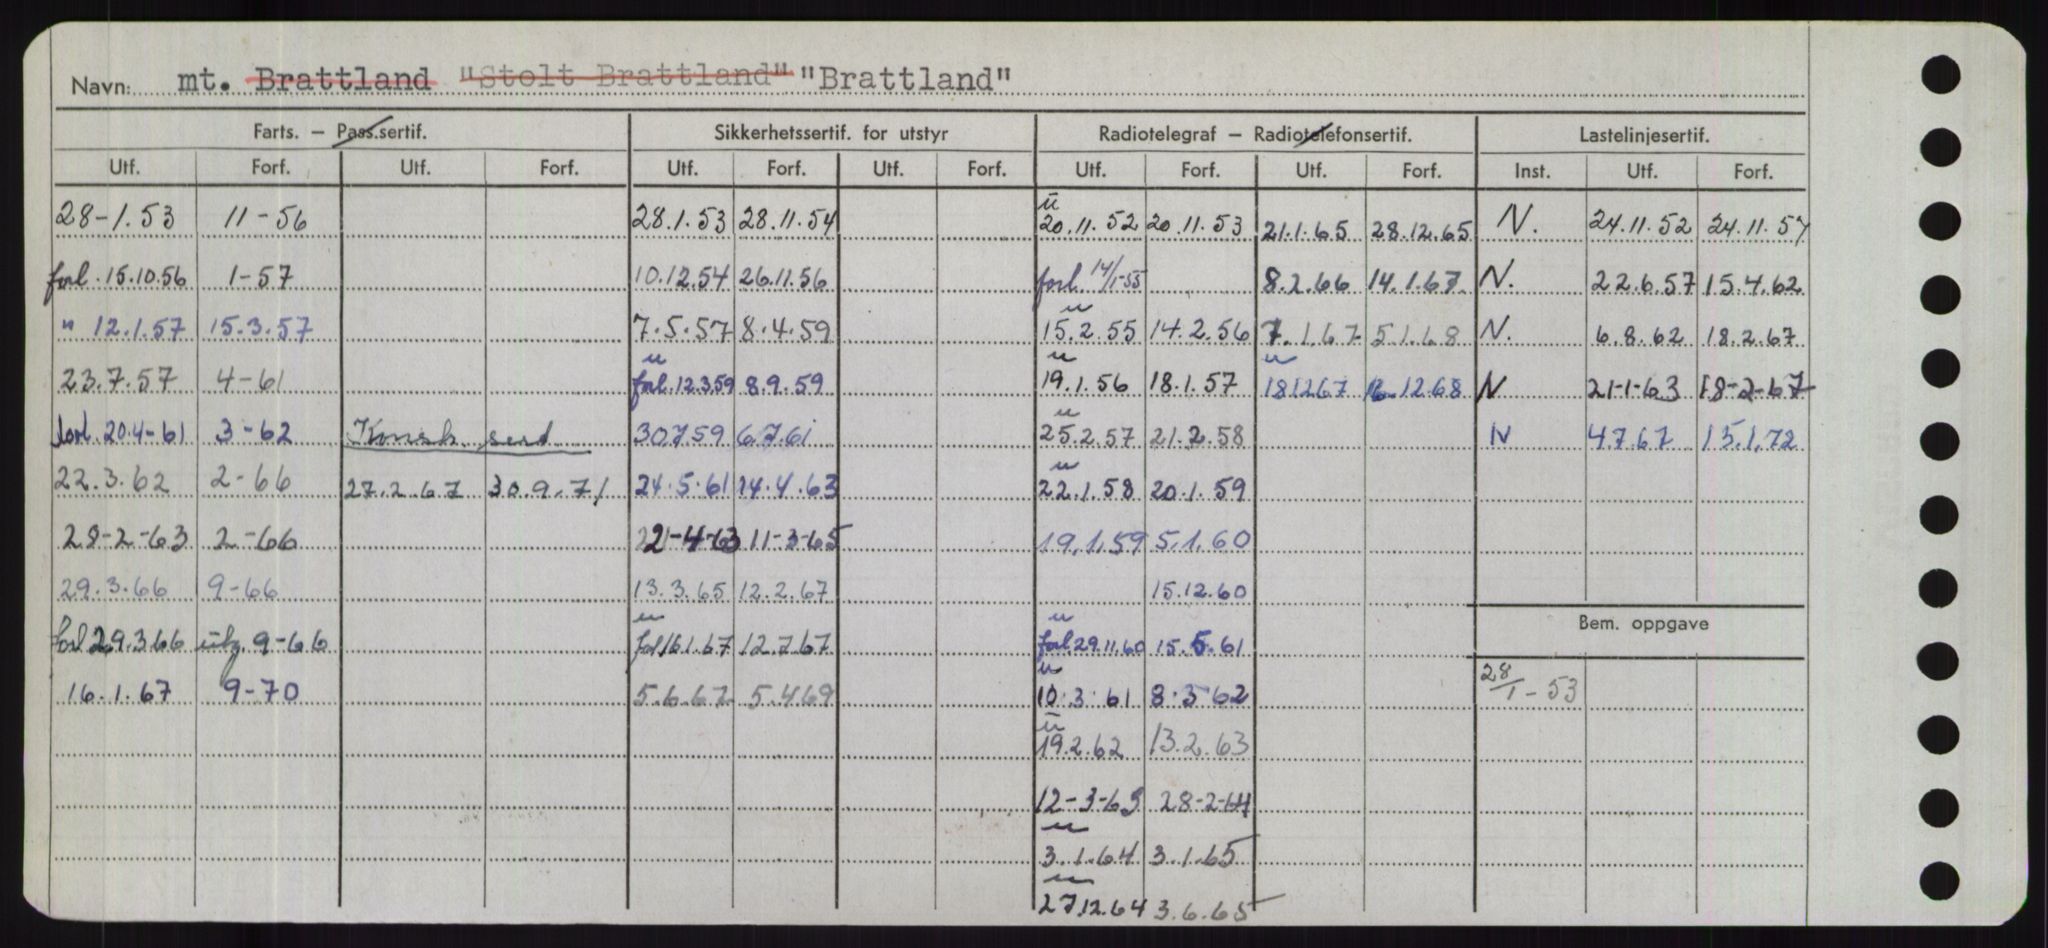 Navn: mt. Brattland "Stolt Brattland" "Brattland"
Farts. – Pass.sertif. Sikkerhetssertif. for utstyr Radiotelegraf – Radiotelefonsertif. Lastelinjesertif.
Utf. Forf. Utf. Forf. Utf. Forf. Utf. Forf. Utf. Forf. Utf. Forf. Inst. Utf. Forf.
28-1.53 11-56 28.1.53 28.11.54 u 20.11.52 20.11.53 21.1.65 28.12.65 N. 24.11.52 24.11.57
forl. 15.10.56 1-57 10.12.54 26.11.56 forl. 14/1-55 8.2.66 14.1.67 N. 22.6.57 15.4.62
" 12.1.57 15.3.57 7.5.57 8.4.59 u 15.2.55 14.2.56 7.1.67 5.1.68 N. 6.8.62 18.2.67
23.7.57 4-61 u forl. 12.3.59 8.9.59 u 19.1.56 18.1.57 u 18.12.67 12.68 N 21-1-63 18-2-67
forl. 20.4-61 3-62 Konsk. send 30.7.59 6.7.61 u 25.2.57 21.2.58 N 4.7.67 15.1.72
22.3.62 2-66 27.2.67 30.9.71 24.5.61 14.4.63 u 22.1.58 20.1.59
28-2-63 2-66 22-4-63 11-3-65 19.1.59 5.1.60
29.3.66 9-66 13.3.65 12.2.67 15.12.60
forl 29.3.66 utg. 9-66 u forl 16.1.67 12.7.67 u forl 29.11.60 15.5.61 Bem. oppgave
16.1.67 9-70 5.6.67 5.4.69 u 10.3.61 8.3.62 28/1-53
u 19.2.62 13.2.63
12-3-63 28-2-64
u 3.1.64 3.1.65
u 27.12.64 3.6.65